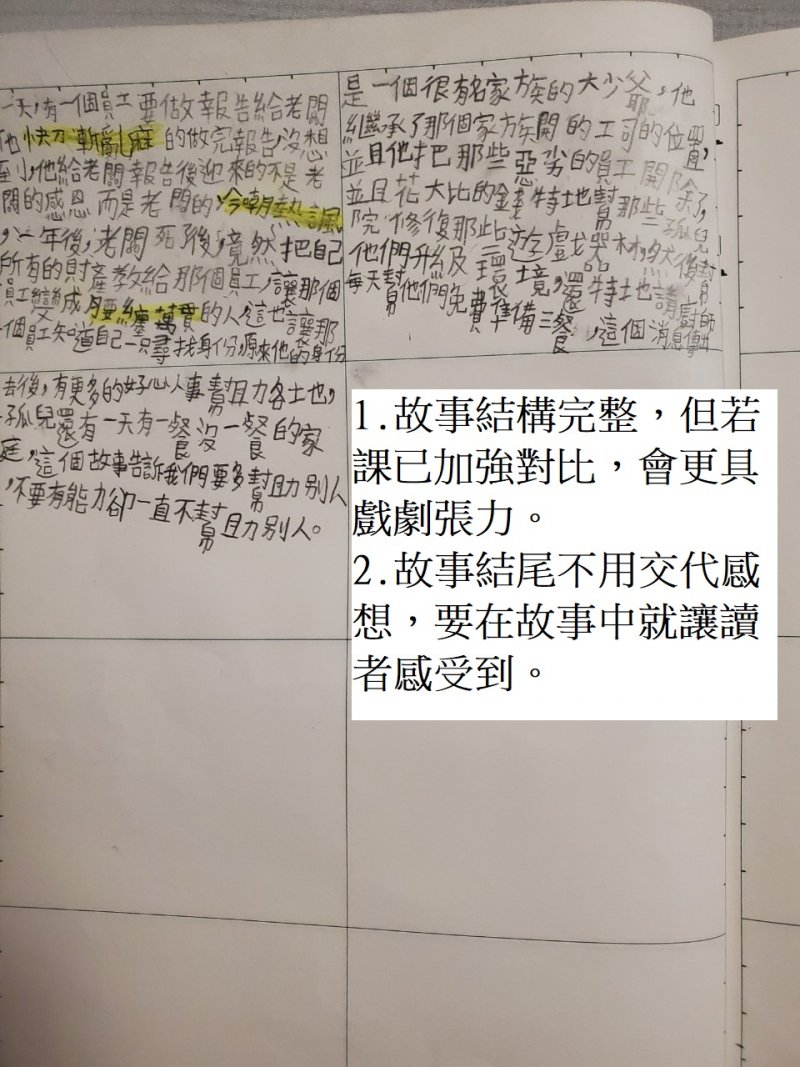 一天,有一個員工要做報告給老闆
他快刀斬亂麻的做完報告,沒想
到,他給老闆報告後迎來的不是老
闆的感恩而是老闆的冷嘲熱諷
,一年後,老闆死了後,竟然把自己
所有的財產教給那個員工,讓那個
員工變成腰纏萬貫的人,這也讓那
個員工知道自己一只尋找身份,原來他的身份
是一個很有名家族的大少爺,他
繼承了那個家族開的工司的位置,
並且他把那些惡劣的員工開除了,
並且花大比的錢特地幫那些孤兒
院修復那些遊戲器材,然後幫
他們升級環境,還特地請廚師
每天幫他們免費準備三餐,這個消息傳出
去後,有更多的好心人事幫助各土也,
孤兒還有一天有一餐沒一餐的家
庭,這個故事告訴我們要多幫助別人
,不要有能力卻一直不幫助別人。
1.故事結構完整,但若
課已加強對比,會更具
戲劇張力。
2.故事結尾不用交代感
想,要在故事中就讓讀
者感受到。